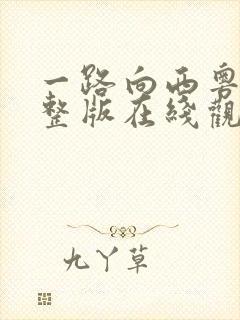 一路向西粤
整版在綫觀
九丫草